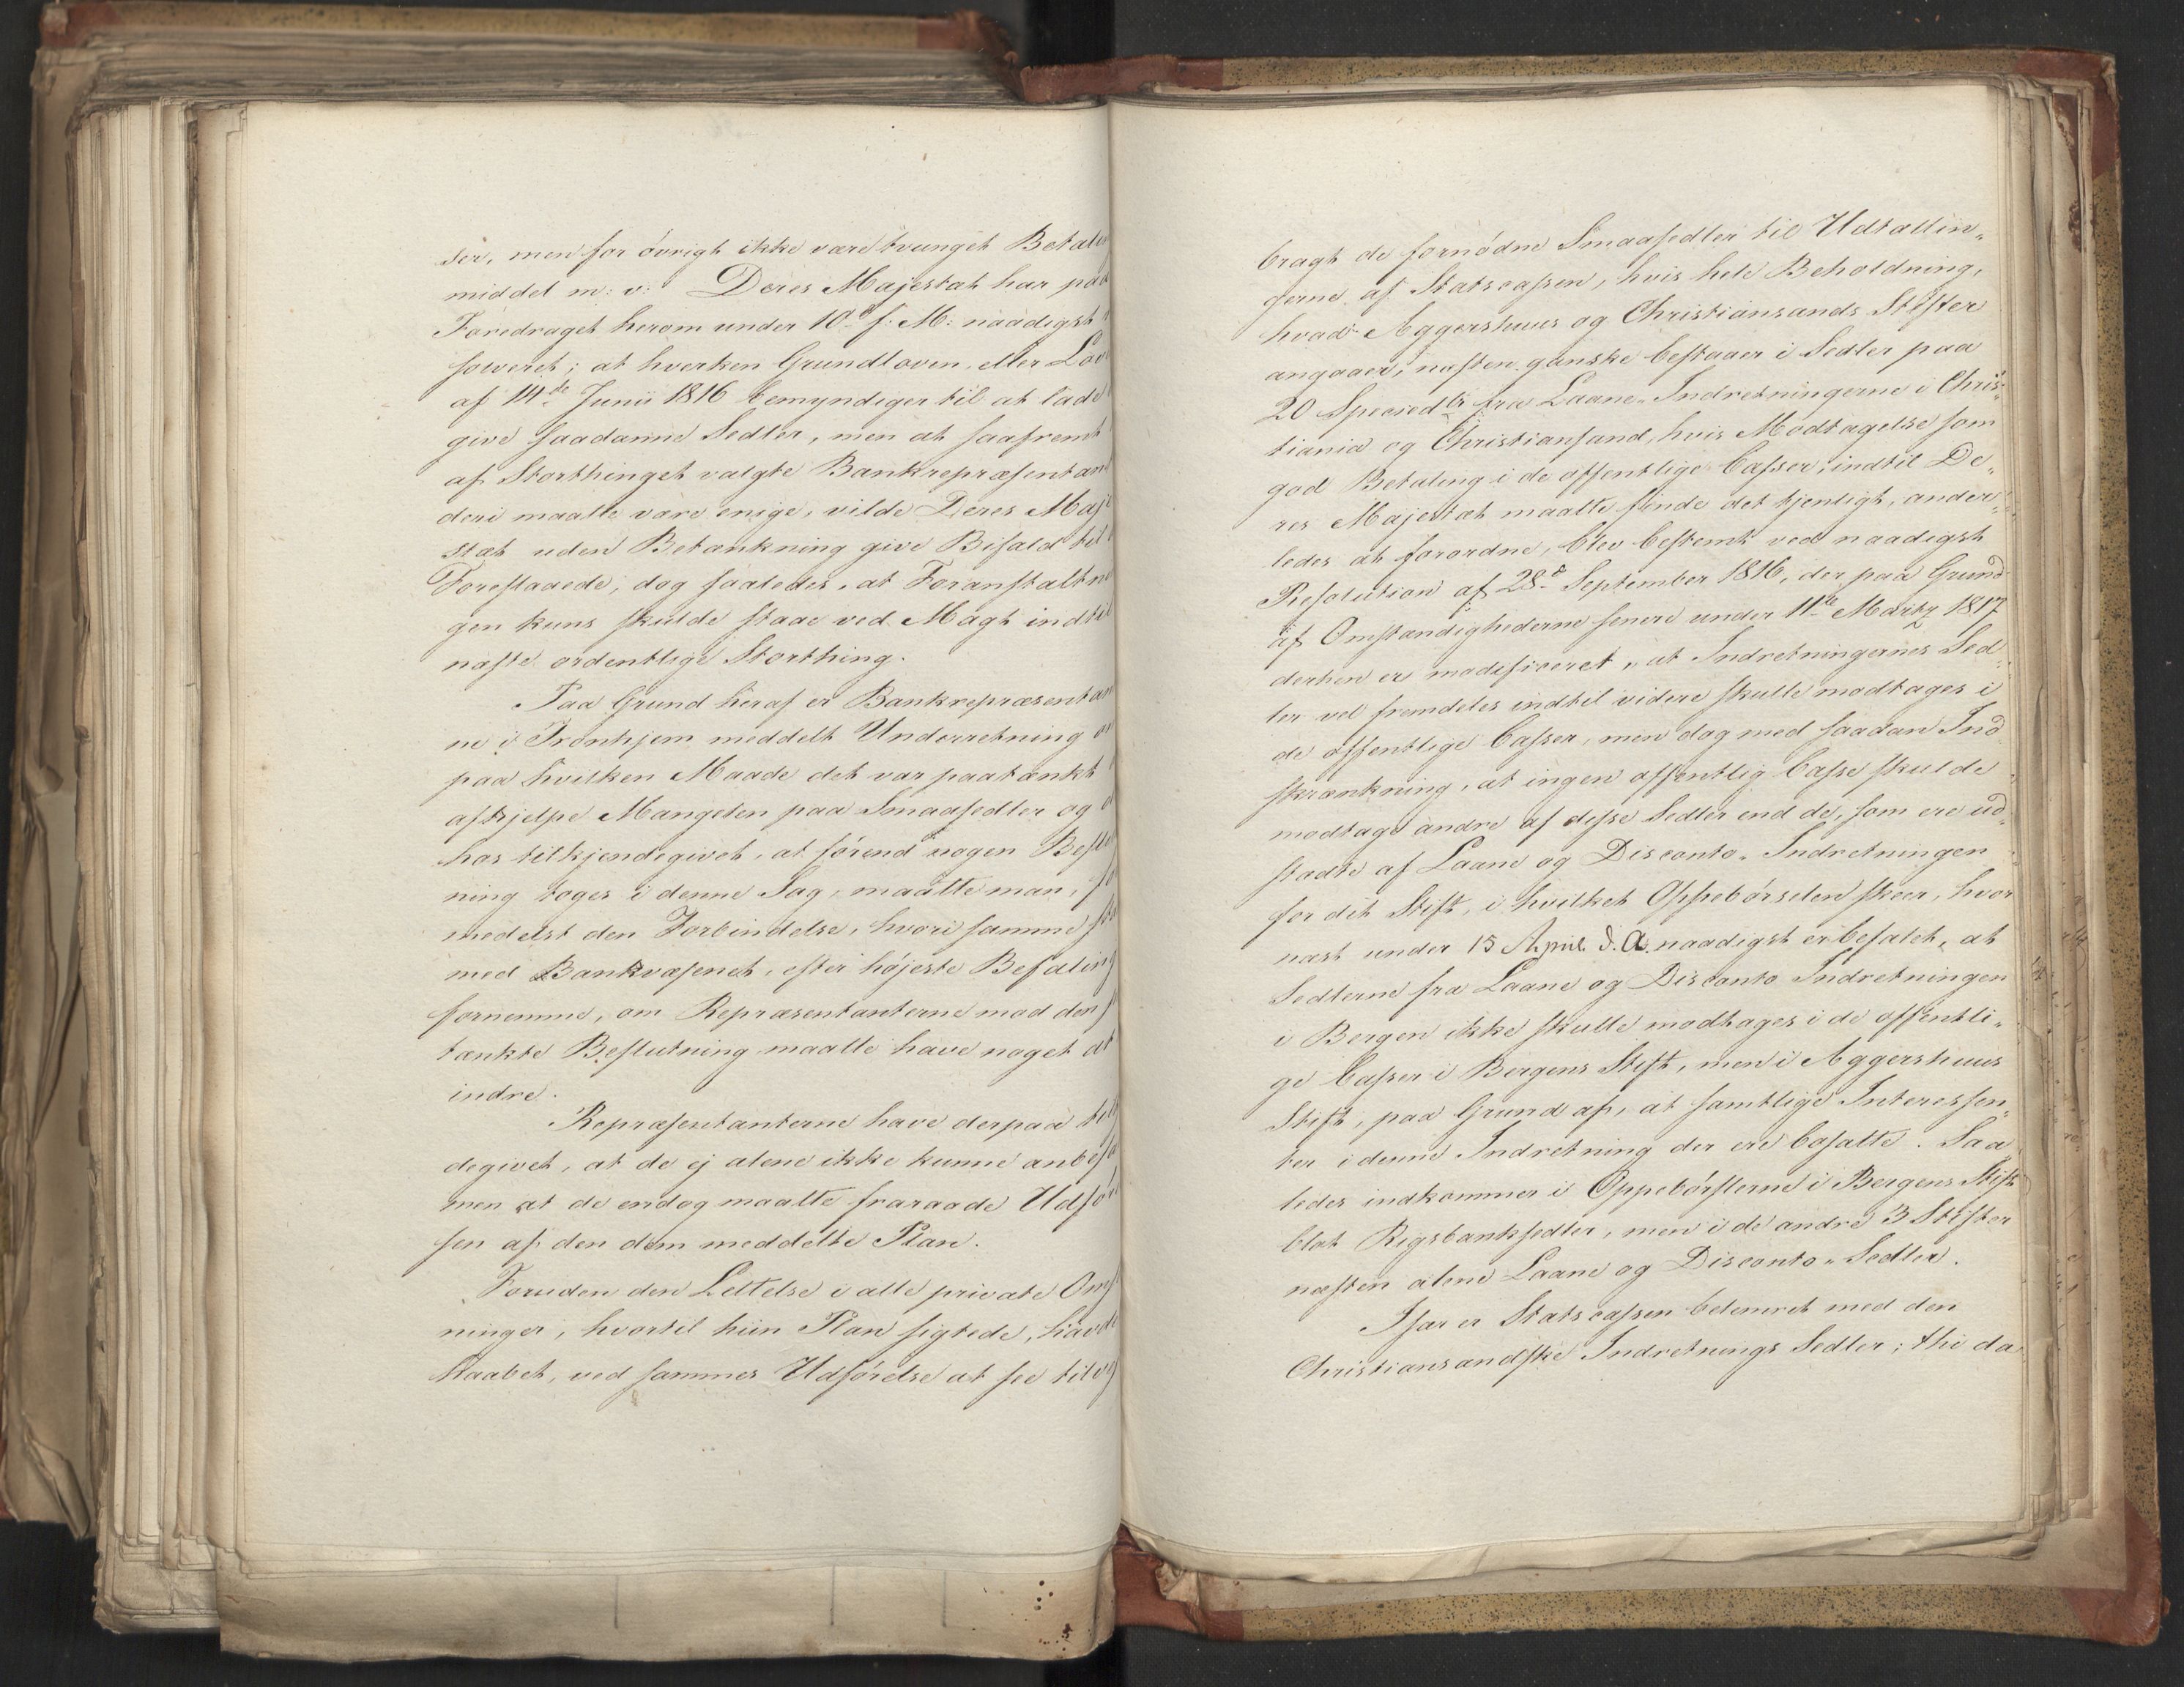 ser, men for övrigt ikke være tvunget Betalin
middel m: v: Deres Majestæt har paa
Foredraget herom under 10.d f: M: naadigst
solveret; at hverken Grundloven, eller Lov
af 14de Junii 1816 bemyndiger til at lade
give saadanne Sedler, men at saafremt
af Storthinget valgte Bankrepræsentan
deri maatte være enige, vilde Deres Maje
stæt uden Betænkning give Bifald til
Foreslaaede, dog saaledes, at Foranstaltn
gen kuns skulde staae ved Magt indtil
næste ordentlige Storthing.
Paa Grund heraf er Bankrepræsentan
ne i Tronhjem meddelt Underretning o
paa hvilken Maade det var paatænkt
afhjelpe Mangelen paa Smaasedler og
hos tilkjendegivet, at förend nogen Besl
ning toges i denne Sag, maatte man, fo
medelst den Forbindelse, hvori samme
med Bankvæsenet, efter höjeste Befaling
fornemme, om Repræsentanterne mod den
tænkte Beslutning maatte have noget at
indre.
Repræsentanterne have derpaa til
degivet, at de ej alene ikke kunne anbefa
men at de endog maatte fraraade Udför
sen af den dem meddelte Plan.
Foruden den Lettelse i alle private Oms
ninger, hvortil hiin Plan sigtede, havde
Haabet, ved sammes Udförelse at see tilve
bragt de fornödne Smaasedler til Udtællin„
gerne af Statscassen, hvis hele Beholdning,
hvad Aggershuus og Christiansands Stifter
angaaer, næsten ganske bestaaer i Sedler paa
20 Speciedlr fra Laane„Indretningerne i Chris„
tiania og Christiansand, hvis Modtagelse som
god Betaling i de offentlige Casser, indtil De„
res Majestæt maatte finde det tjenligt, ander„
ledes at forordne, blev bestemt ved naadigst
Resolution af 28.d September 1816, der paa Grund
af Omstændighederne senere under 11te Martz 1817
derhen er modificeret, at Indretningernes Sed„
ler vel fremdeles indtil videre skulle modtages i
de offentlige Casser, men dog med saadan Ind„
skrænkning, at ingen offentlig Casse skulde
modtage andre af disse Sedler end de, som ere ud„
stædte af Laane og Disconto„Indretningen
for dit Stift, i hvilket Oppebörselen skeer, hvor
næst under 15 April d. A. naadigst er befalet, at
Sedlerne fra Laane og Disconto Indretningen
i Bergen ikke skulle modtages i de offentli„
ge Casser i Bergens Stift, men i Aggershuus
Stift, paa Grund af, at samtlige Interessen„
ter i denne Indretning der ere bosatte. Saa
ledes indkommer i Oppebörslerne i Bergens Stift
blot Rigsbanksedler, men i de andre 3 Stifter
næsten alene Laane og Disconto„Sedler.
Især er Statscassen belemret med den
Christiansandske Indretnings Sedler; thi da